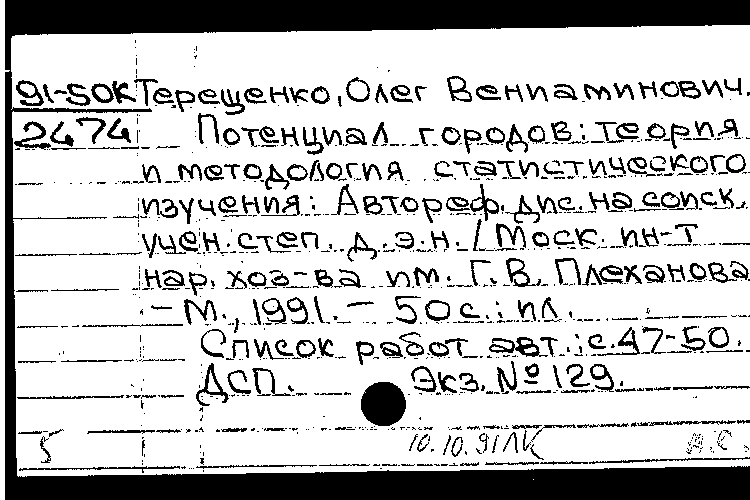 91-50К Терещенко, Олег Вениаминович.
2474 Потенциал городов: теория
и методология статистического
изучения: Автореф. дис. на соиск.
учен. степ. д.э.н. / Моск. ин-т
нар. хоз-ва им. Г.В. Плеханова
- М., 1991. - 50 с.: ил.
Список работ авт.: с.47-50.
ДСП. Экз. № 129.
5 10.10.91 ЛК А.С.